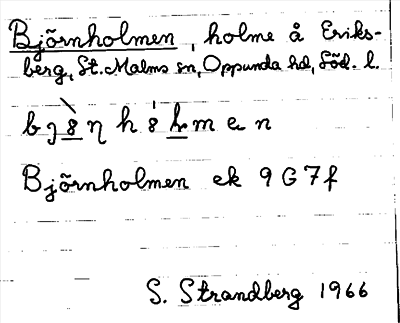 Björnholmen, holme å Eriks-
berg, St. Malms sn, Oppunda hd, Söd. l.
Björnholmen ek 9G7f
S. Strandberg 1966